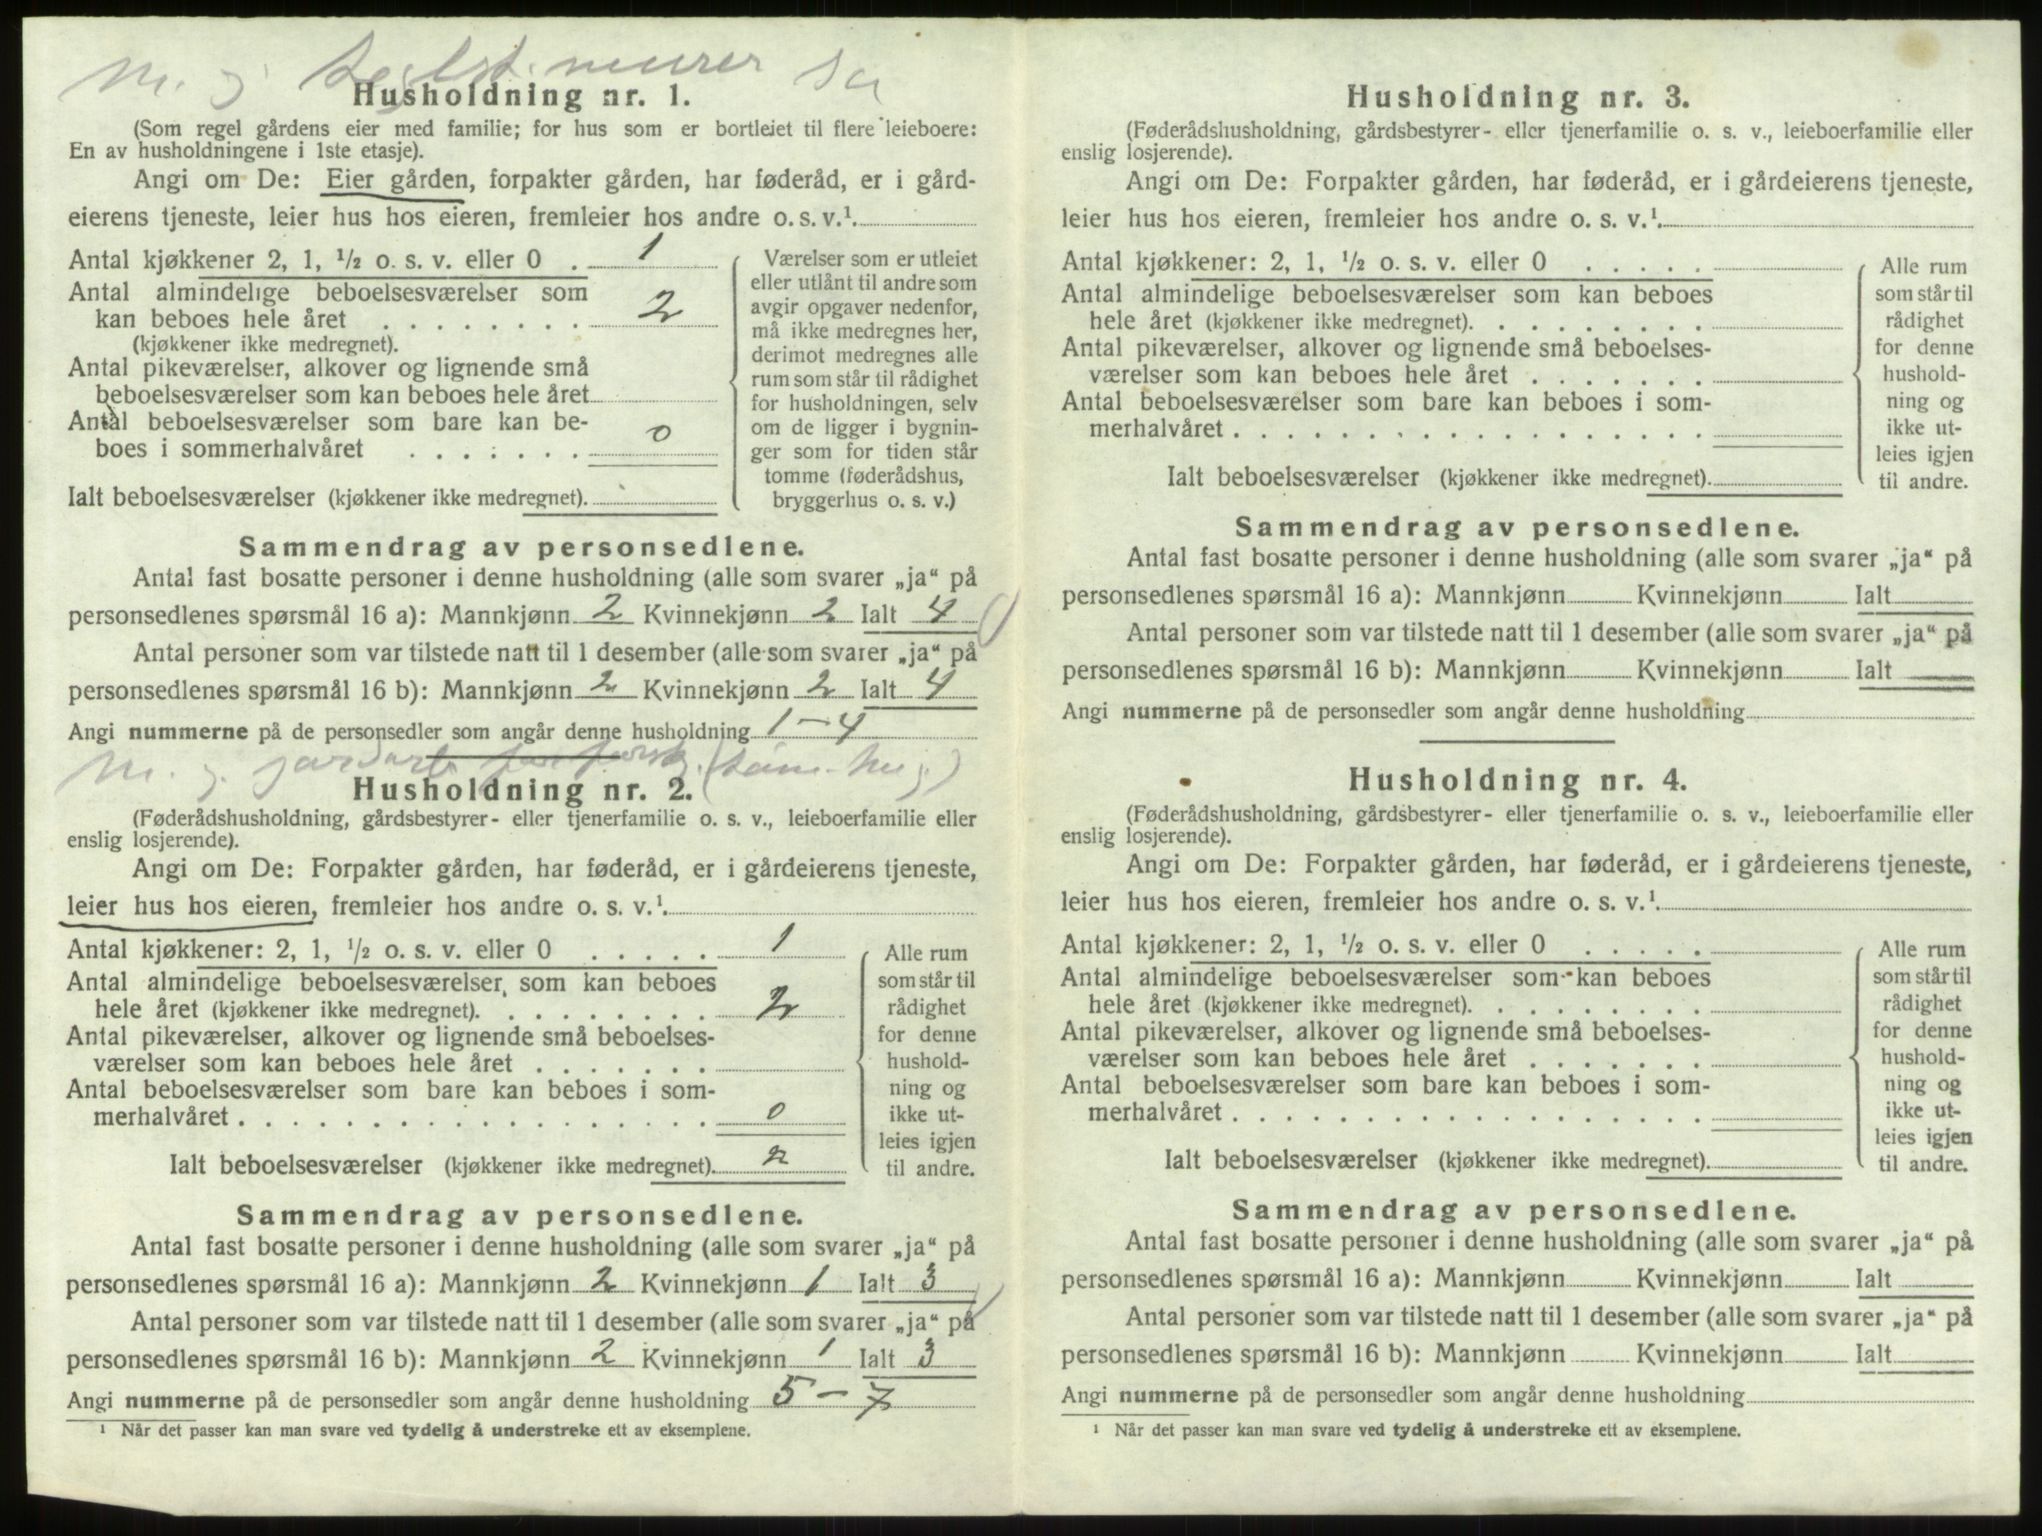 m. g. murer
Husholdning nr. 1.
(Som regel gårdens eier med familie; for hus som er bortleiet til flere leieboere:
En av husholdningene i 1ste etasje).
Angi om De: Eier gården, forpakter gården, har føderåd, er i gård-
eierens tjeneste, leier hus hos eieren, fremleier hos andre o. s. v.¹.
Antal kjøkkener 2, 1, ½ o. s. v. eller 0 . 1
Antal almindelige beboelsesværelser som
kan beboes hele året . . . . . . . . 2
(kjøkkener ikke medregnet).
Antal pikeværelser, alkover og lignende små
beboelsesværelser som kan beboes hele året
Antal beboelsesværelser som bare kan be-
boes i sommerhalvåret . . . . . . . 0
Ialt beboelsesværelser (kjøkkener ikke medregnet).
Værelser som er utleiet
eller utlånt til andre som
avgir opgaver nedenfor,
må ikke medregnes her,
derimot medregnes alle
rum som står til rådighet
for husholdningen, selv
om de ligger i bygnin-
ger som for tiden står
tomme (føderådshus,
bryggerhus o. s. v.)
Sammendrag av personsedlene.
Antal fast bosatte personer i denne husholdning (alle som svarer „ja“ på
personsedlenes spørsmål 16 a): Mannkjønn 2 Kvinnekjønn 2 Ialt 4
Antal personer som var tilstede natt til 1 desember (alle som svarer „ja“ på
personsedlenes spørsmål 16 b): Mannkjønn 2 Kvinnekjønn 2 Ialt 4
Angi nummerne på de personsedler som angår denne husholdning 1–4
m. g.
Husholdning nr. 2.
(Føderådshusholdning, gårdsbestyrer- eller tjenerfamilie o. s. v., leieboerfamilie eller
enslig losjerende).
Angi om De: Forpakter gården, har føderåd, er i gårdeierens tjeneste,
leier hus hos eieren, fremleier hos andre o. s. v.¹.
Antal kjøkkener: 2, 1, ½ o. s. v. eller 0 . . . . . 1
Antal almindelige beboelsesværelser som kan beboes
hele året (kjøkkener ikke medregnet). . . . . . . . . 2
Antal pikeværelser, alkover og lignende små beboelses-
værelser som kan beboes hele året . . . . . . .
Antal beboelsesværelser som bare kan beboes i som-
merhalvåret . . . . . . . . . . . . . . . . . . 0
Ialt beboelsesværelser (kjøkkener ikke medregnet). 2
Alle rum
som står til
rådighet
for denne
hushold-
ning og
ikke ut-
leies igjen
til andre.
Sammendrag av personsedlene.
Antal fast bosatte personer i denne husholdning (alle som svarer „ja“ på
personsedlenes spørsmål 16 a): Mannkjønn 2 Kvinnekjønn 1 Ialt 3
Antal personer som var tilstede natt til 1 desember (alle som svarer „ja“ på
personsedlenes spørsmål 16 b): Mannkjønn 2 Kvinnekjønn 1 Ialt 3
Angi nummerne på de personsedler som angår denne husholdning 5–7
¹ Når det passer kan man svare ved tydelig å understreke ett av eksemplene.
Husholdning nr. 3.
(Føderådshusholdning, gårdsbestyrer- eller tjenerfamilie o. s. v., leieboerfamilie eller
enslig losjerende).
Angi om De: Forpakter gården, har føderåd, er i gårdeierens tjeneste,
leier hus hos eieren, fremleier hos andre o. s. v.¹.
Antal kjøkkener: 2, 1, ½ o. s. v. eller 0 . . . . .
Antal almindelige beboelsesværelser som kan beboes
hele året (kjøkkener ikke medregnet). . . . . . . . .
Antal pikeværelser, alkover og lignende små beboelses-
værelser som kan beboes hele året . . . . . . .
Antal beboelsesværelser som bare kan beboes i som-
merhalvåret . . . . . . . . . . . . . . . . . .
Ialt beboelsesværelser (kjøkkener ikke medregnet).
Alle rum
som står til
rådighet
for denne
hushold-
ning og
ikke ut-
leies igjen
til andre.
Sammendrag av personsedlene.
Antal fast bosatte personer i denne husholdning (alle som svarer „ja“ på
personsedlenes spørsmål 16 a): Mannkjønn Kvinnekjønn Ialt
Antal personer som var tilstede natt til 1 desember (alle som svarer „ja“ på
personsedlenes spørsmål 16 b): Mannkjønn Kvinnekjønn Ialt
Angi nummerne på de personsedler som angår denne husholdning
Husholdning nr. 4.
(Føderådshusholdning, gårdsbestyrer- eller tjenerfamilie o. s. v., leieboerfamilie eller
enslig losjerende).
Angi om De: Forpakter gården, har føderåd, er i gårdeierens tjeneste,
leier hus hos eieren, fremleier hos andre o. s. v.¹.
Antal kjøkkener: 2, 1, ½ o. s. v. eller 0 . . . . .
Antal almindelige beboelsesværelser som kan beboes
hele året (kjøkkener ikke medregnet). . . . . . . . .
Antal pikeværelser, alkover og lignende små beboelses-
værelser som kan beboes hele året . . . . . . .
Antal beboelsesværelser som bare kan beboes i som-
merhalvåret . . . . . . . . . . . . . . . . . .
Ialt beboelsesværelser (kjøkkener ikke medregnet).
Alle rum
som står til
rådighet
for denne
hushold-
ning og
ikke ut-
leies igjen
til andre.
Sammendrag av personsedlene.
Antal fast bosatte personer i denne husholdning (alle som svarer „ja“ på
personsedlenes spørsmål 16 a): Mannkjønn Kvinnekjønn Ialt
Antal personer som var tilstede natt til 1 desember (alle som svarer „ja“ på
personsedlenes spørsmål 16 b): Mannkjønn Kvinnekjønn Ialt
Angi nummerne på de personsedler som angår denne husholdning
¹ Når det passer kan man svare ved tydelig å understreke ett av eksemplene.